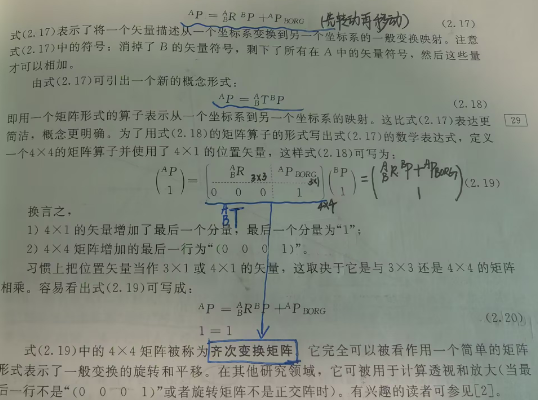 ᴬP = ᴬ_BR ᴮP + ᴬP_BORG (先转动再移动) (2.17)
式(2.17)表示了将一个矢量描述从一个坐标系变换到另一个坐标系的一般变换映射。注意
式(2.17)中的符号：消掉了 B 的矢量符号，剩下了所有在 A 中的矢量符号，然后这些量
才可以相加。
由式(2.17)可引出一个新的概念形式：
ᴬP = ᴬ_BT ᴮP (2.18)
即用一个矩阵形式的算子表示从一个坐标系到另一个坐标系的映射。这比式(2.17)表达更
简洁，概念更明确。为了用式(2.18)的矩阵算子的形式写出式(2.17)的数学表达式，定义 29
一个4×4的矩阵算子并使用了 4×1 的位置矢量，这样式(2.18)可写为：
(ᴬP 1) = [ᴬ_BR 3x3 ᴬP_BORG 3x1 0 0 0 1] 4x4 (ᴮP 1) = (ᴬ_BR ᴮP + ᴬP_BORG 1) (2.19)
ᴬ_BT
换言之，
1) 4×1 的矢量增加了最后一个分量，最后一个分量为“1”；
2) 4×4 矩阵增加的最后一行为“(0 0 0 1)”。
习惯上把位置矢量当作 3×1 或 4×1 的矢量，这取决于它是与 3×3 还是 4×4 的矩阵
相乘。容易看出式(2.19)可写成：
ᴬP = ᴬ_BR ᴮP + ᴬP_BORG
1 = 1 (2.20)
式(2.19)中的 4×4 矩阵被称为齐次变换矩阵，它完全可以被看作用一个简单的矩阵
形式表示了一般变换的旋转和平移。在其他研究领域，它可被用于计算透视和放大(当最
后一行不是“(0 0 0 1)”或者旋转矩阵不是正交阵时)。有兴趣的读者可参见[2]。